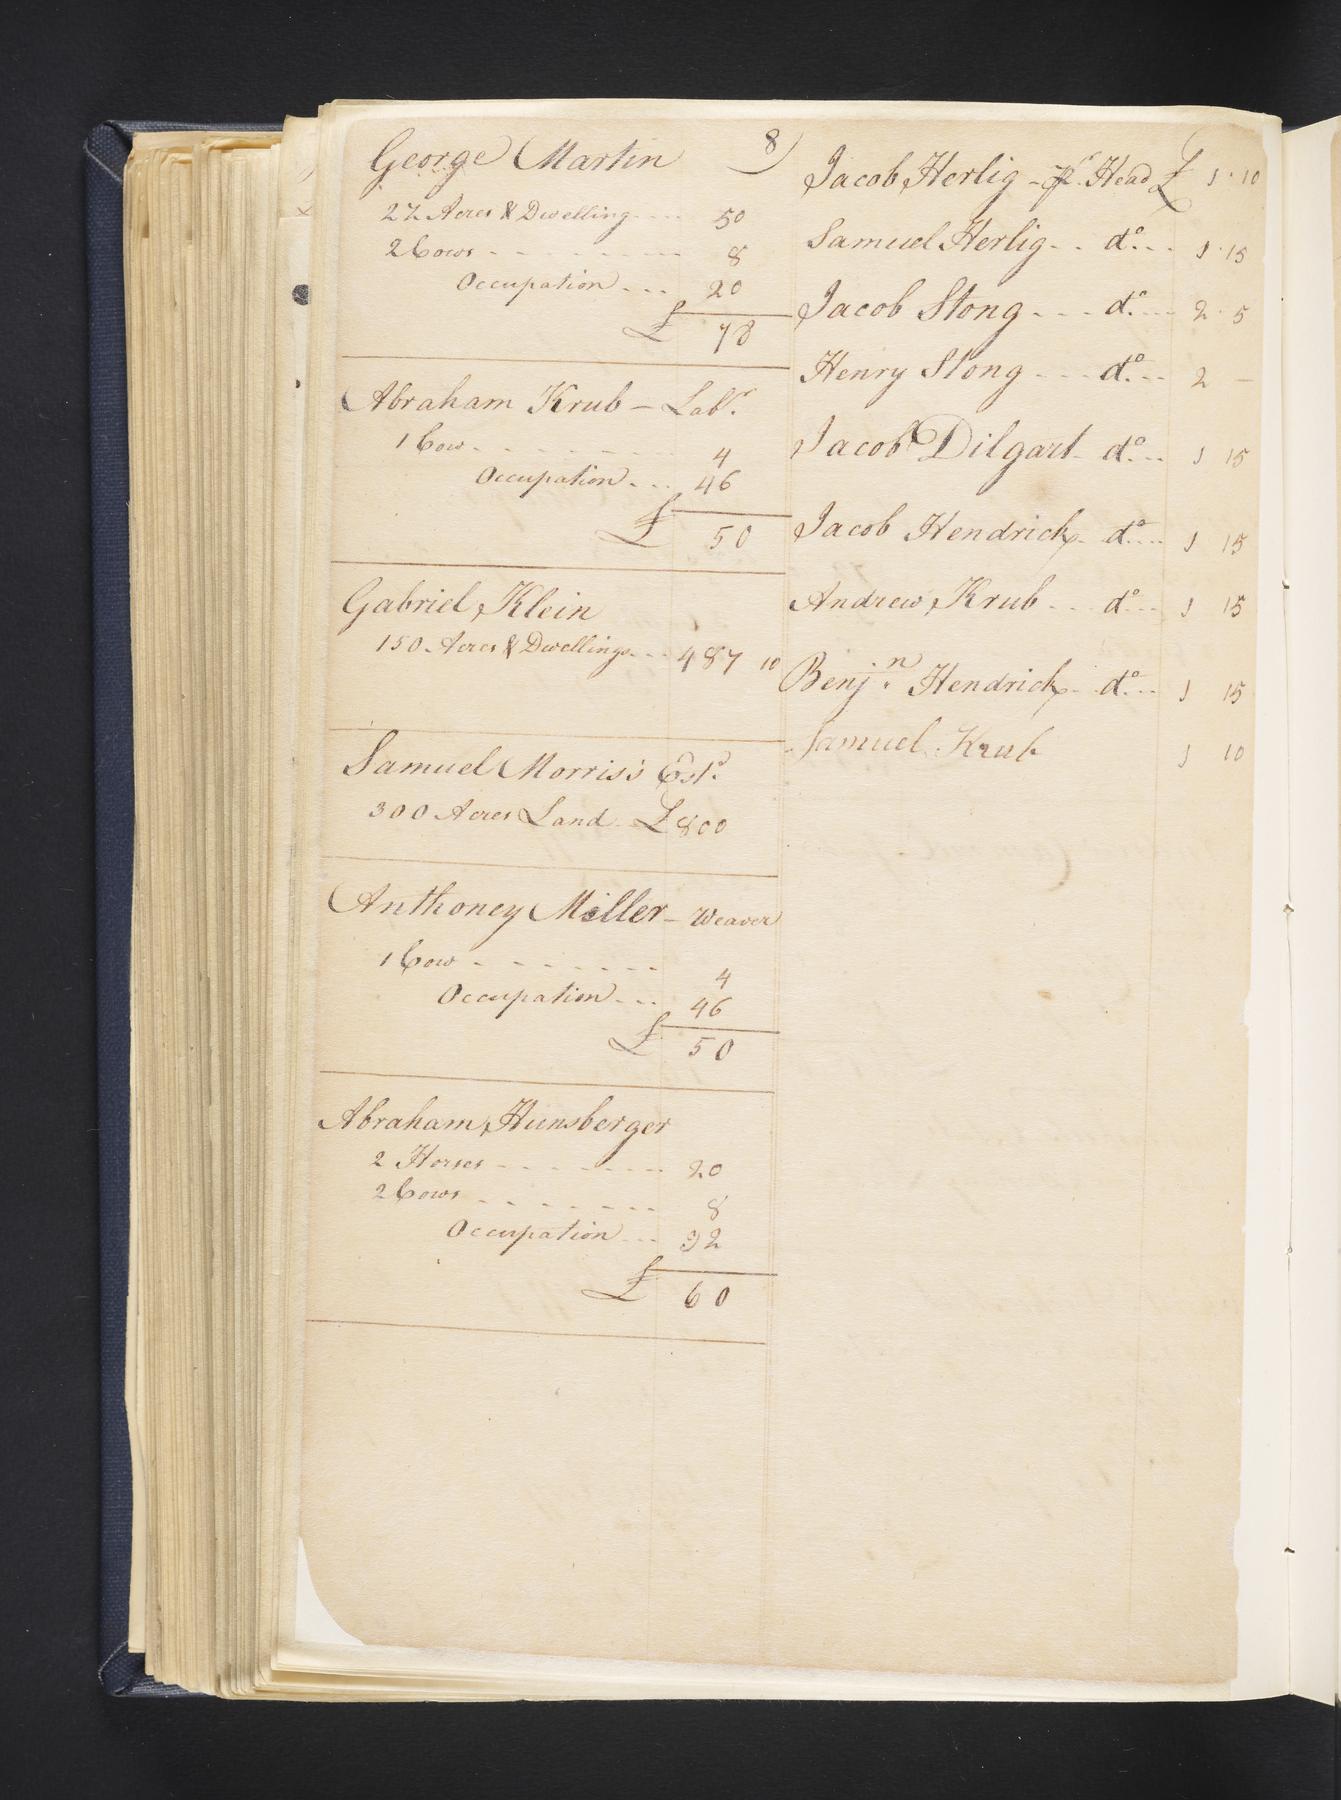 8
George Martin
22 Acres & Dwelling ---- 50
2 Cows - - - - - - - - 8
Occupation --- 20
£ 78
Abraham Krub – Labr.
1 Cow - - - - - - - - 4
Occupation --- 46
£ 50
Gabriel Klein
150 Acres & Dwellings --- 487 10
Samuel Morris's Estt.
300 Acres Land - £800
Anthoney Miller – Weaver
1 Cow - - - - - - - 4
Occupation --- 46
£ 50
Abraham Hunsberger
2 Horses - - - - - - - 20
2 Cows - - - - - - - 8
Occupation --- 32
£ 60
Jacob Herlig – pr. Head £ 1 · 10
Samuel Herlig - - do. -- 1 · 15
Jacob Stong - - - do. --- 2 · 5
Henry Stong - - - do. -- 2 –
Jacob Dilgart - do. -- 1 15
Jacob Hendrick - do. --- 1 15
Andrew Krub - - do. --- 1 15
Benjn. Hendrick - do. --- 1 15
Samuel Krub 1 10